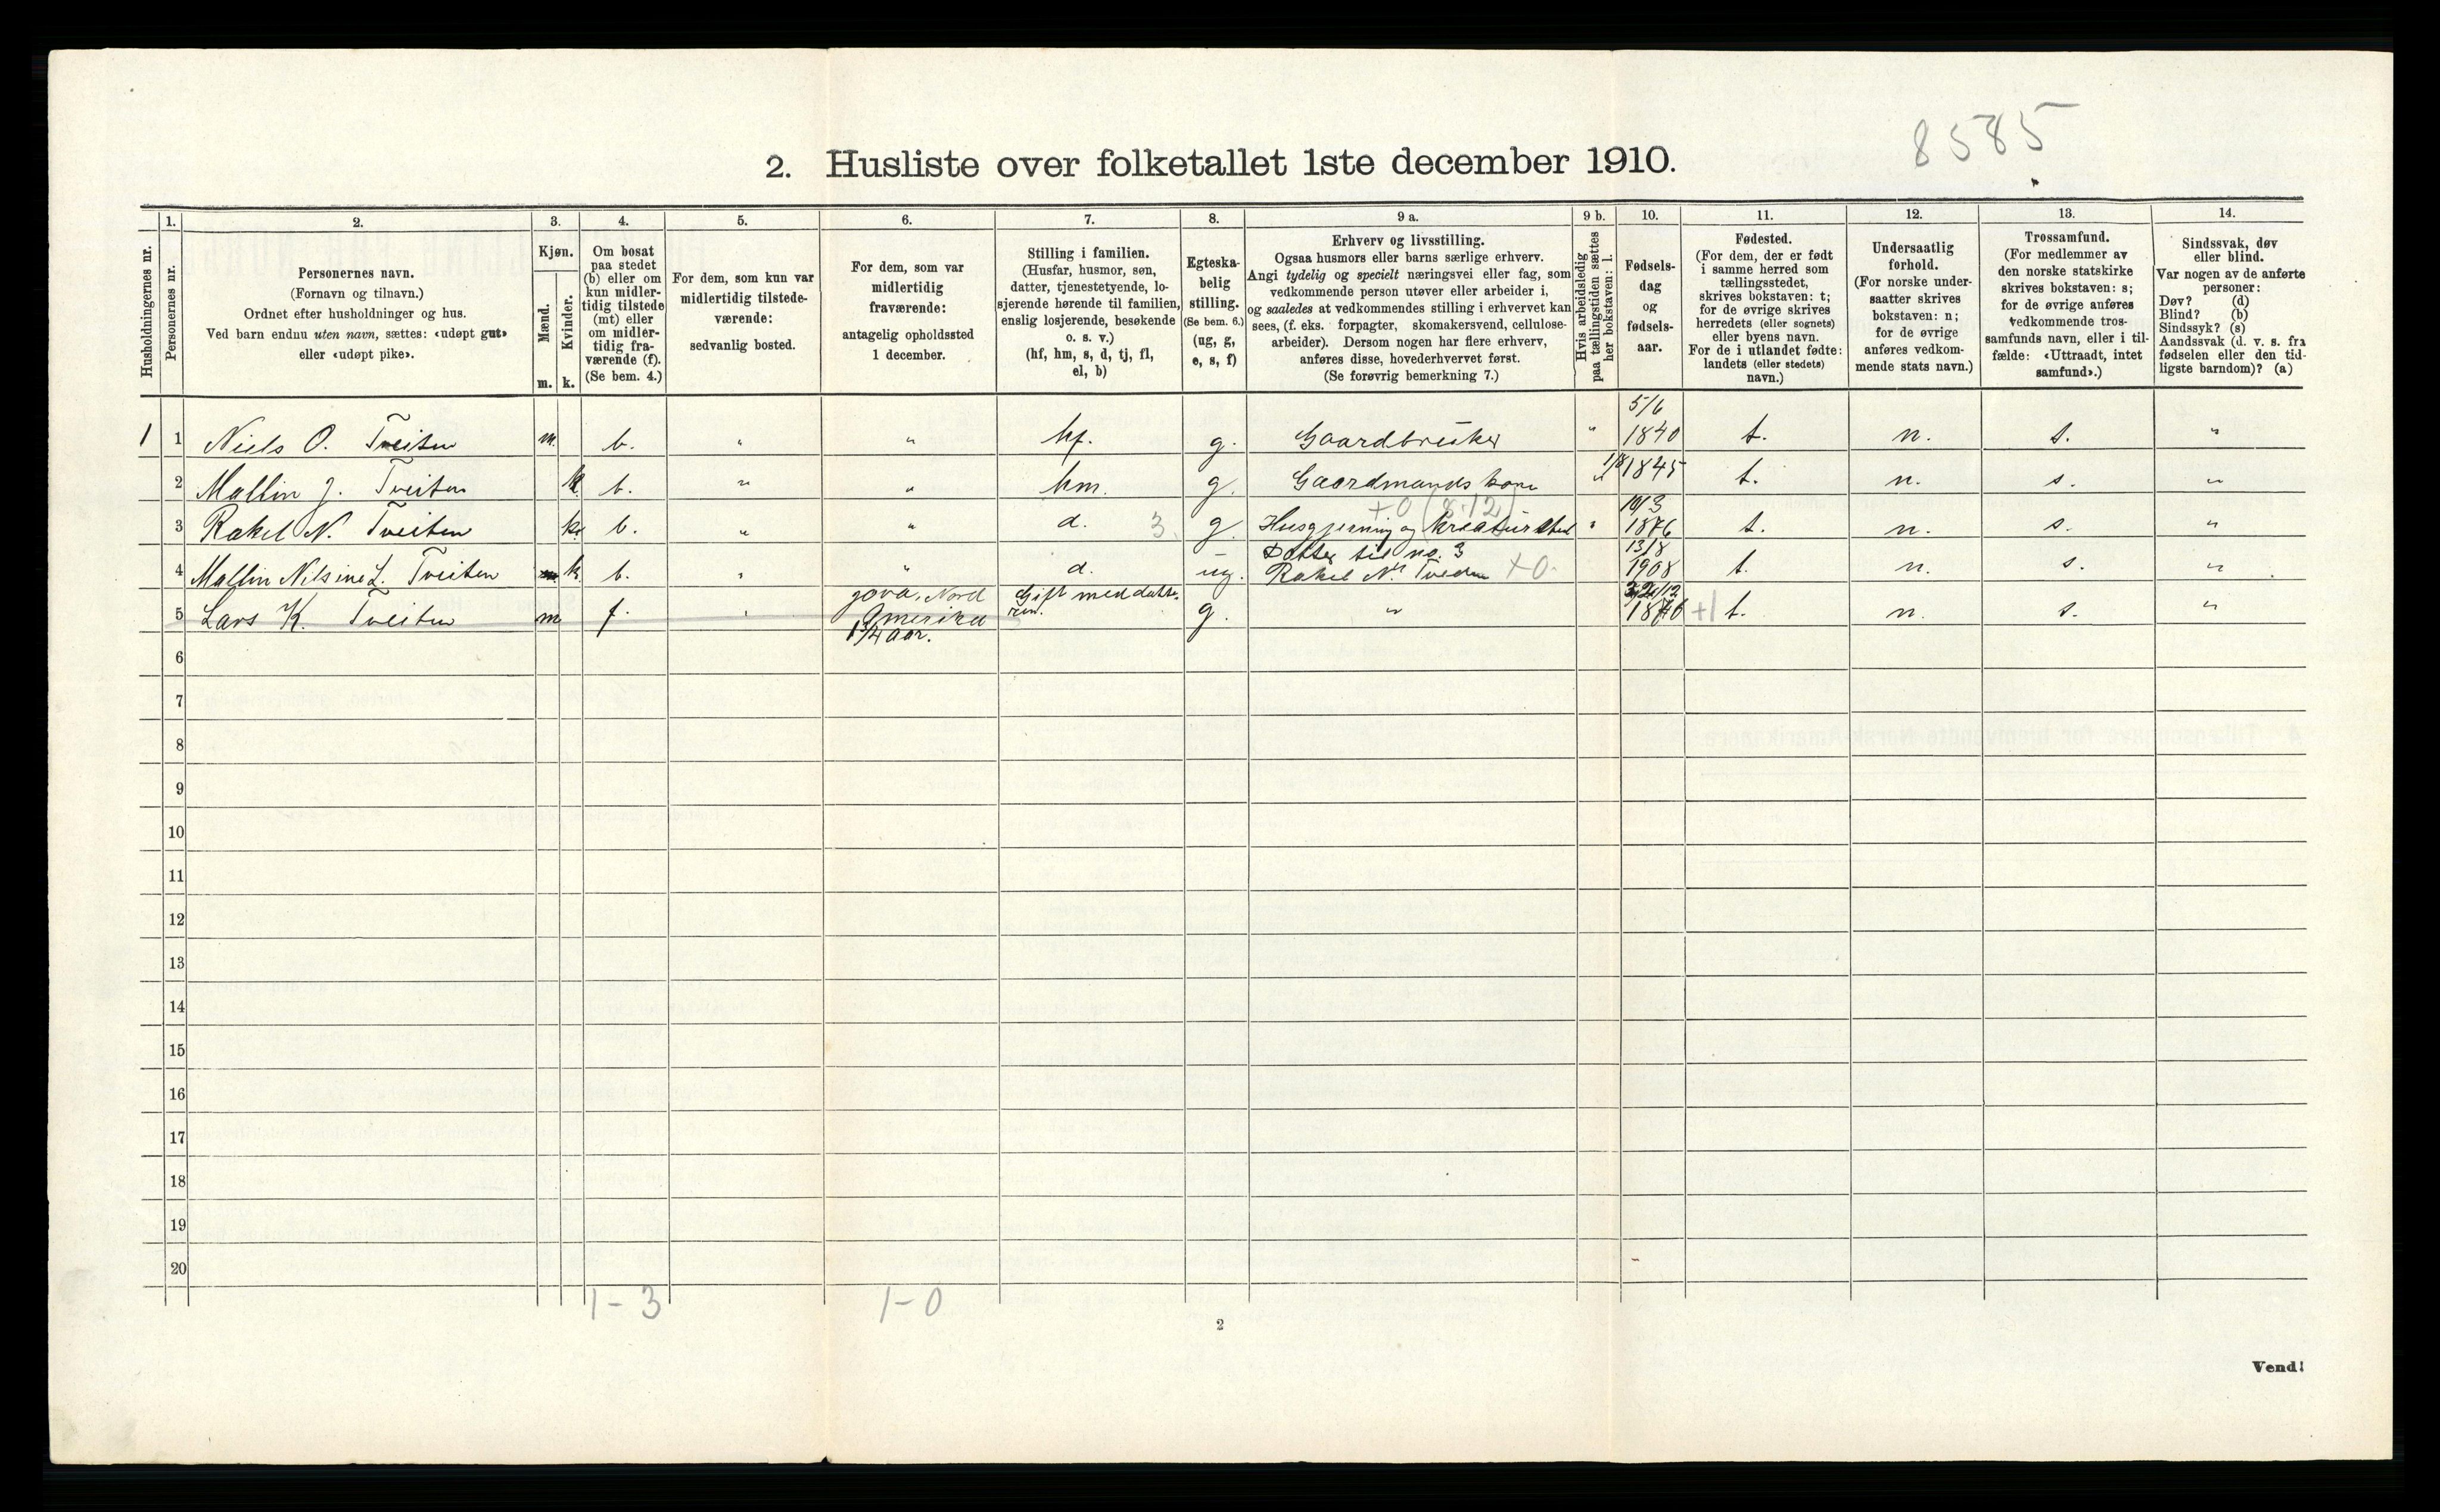 8585
2. Husliste over folketallet 1ste december 1910.
Husholdningernes nr.
1.
Personernes nr.
2.
Personernes navn.
(Fornavn og tilnavn.)
Ordnet efter husholdninger og hus.
Ved barn endnu uten navn, sættes: «udøpt gut»
eller «udøpt pike».
3.
Kjøn.
Mænd.
Kvinder.
m. k.
4.
Om bosat
paa stedet
(b) eller om
kun midler-
tidig tilstede
(mt) eller
om midler-
tidig fra-
værende (f).
(Se bem. 4.)
5.
For dem, som kun var
midlertidig tilstede-
værende:
sedvanlig bosted.
6.
For dem, som var
midlertidig
fraværende:
antagelig opholdssted
1 december.
7.
Stilling i familien.
(Husfar, husmor, søn,
datter, tjenestetyende, lo-
sjerende hørende til familien,
enslig losjerende, besøkende
o. s. v.)
(hf, hm, s, d, tj, fl,
el, b)
8.
Egteska-
belig
stilling.
(Se bem. 6.)
(ug, g,
e, s, f)
9 a.
Erhverv og livsstilling.
Ogsaa husmors eller barns særlige erhverv.
Angi tydelig og specielt næringsvei eller fag, som
vedkommende person utøver eller arbeider i,
og saaledes at vedkommendes stilling i erhvervet kan
sees, (f. eks. forpagter, skomakersvend, cellulose-
arbeider). Dersom nogen har flere erhverv,
anføres disse, hovederhvervet først.
(Se forøvrig bemerkning 7.)
9 b.
Hvis arbeidsledig
paa tællingstiden sættes
her bokstaven: l.
10.
Fødsels-
dag
og
fødsels-
aar.
11.
Fødested.
(For dem, der er født
i samme herred som
tællingsstedet,
skrives bokstaven: t;
for de øvrige skrives
herredets (eller sognets)
eller byens navn.
For de i utlandet fødte:
landets (eller stedets)
navn.)
12.
Undersaatlig
forhold.
(For norske under-
saatter skrives
bokstaven: n;
for de øvrige
anføres vedkom-
mende stats navn.)
13.
Trossamfund.
(For medlemmer av
den norske statskirke
skrives bokstaven: s;
for de øvrige anføres
vedkommende tros-
samfunds navn, eller i til-
fælde: «Uttraadt, intet
samfund».)
14.
Sindssvak, døv
eller blind.
Var nogen av de anførte
personer:
Døv? (d)
Blind? (b)
Sindssyk? (s)
Aandssvak (d. v. s. fra
fødselen eller den tid-
ligste barndom)? (a)
5/6
1 1 Niels O. Tveiten m. b. " " hf. g. Gaardbruker " 1840 t. n. s. "
2 Mallin J. Tveiten k b. " " hm. g. Gaardmands kone " 1/8 1845 t. n. s. "
+0 (8.12) 10/3
3 Rakel N. Tveiten k. b. " " d. 3 g. Husgjerning og kreaturstel " 1876 t. n. s. "
Datter til no. 3 13/8
4 Mallin Nilsine L. Tveiten k. b. " " d. ug. Rakel N. Tveiten +0 1908 t. n. s. "
Jova, Nord Gift med datte-
5 Lars K. Tveiten m f. " Amerika ren. g. " 1876 +1 t. n. s. "
1 3/4 aar.
6
7
8
9
10
11
12
13
14
15
16
17
18
19
20
1-3 1-0
2
Vend!